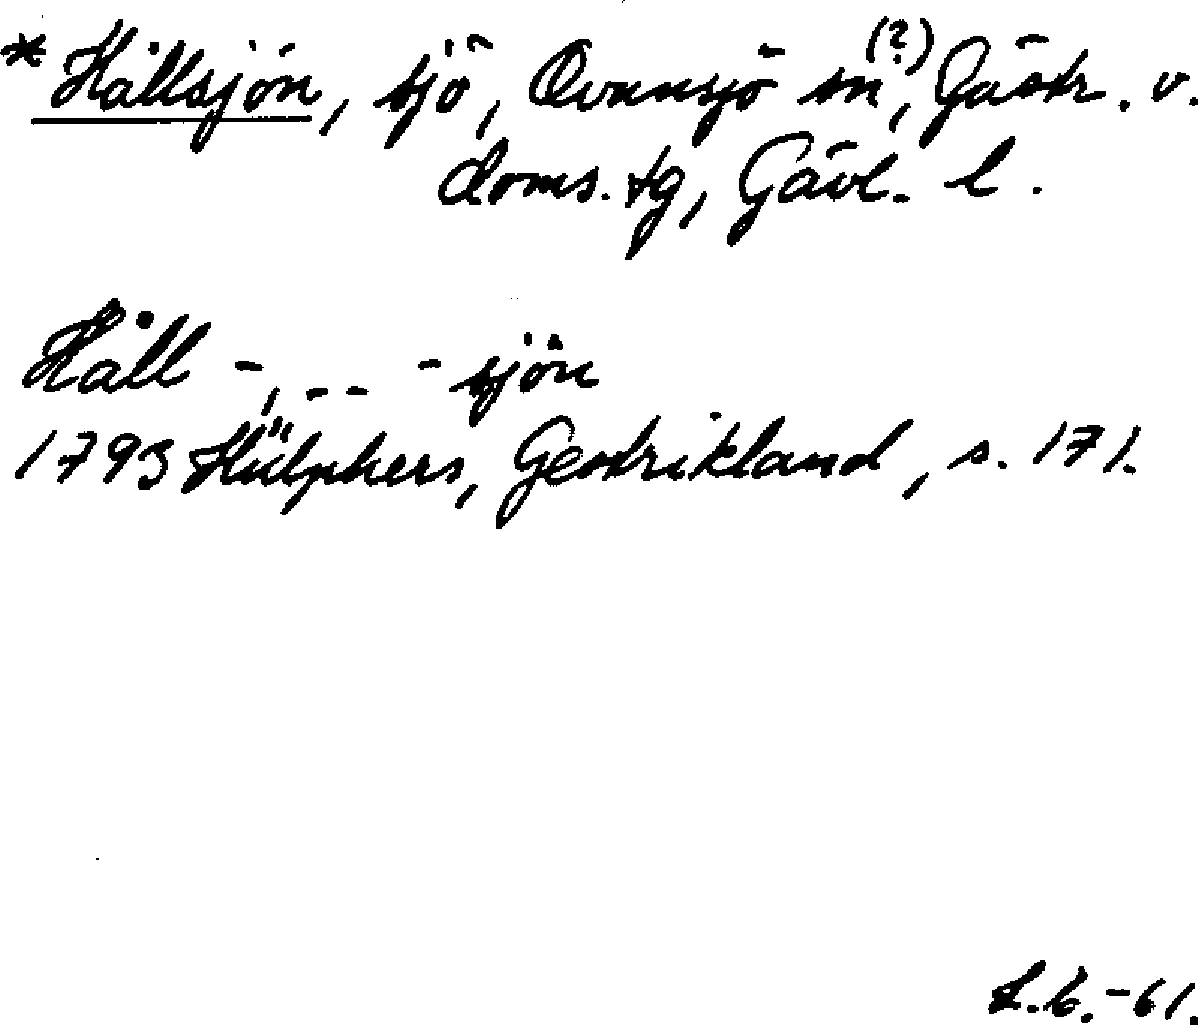 * Hållsjön, sjö, Ovansjö sn(?), Gästr. v.
doms.tg, Gävl. l.
Håll -, - - - sjön
1793 Hülphers, Gestrikland, s. 171.
L.b.-61.